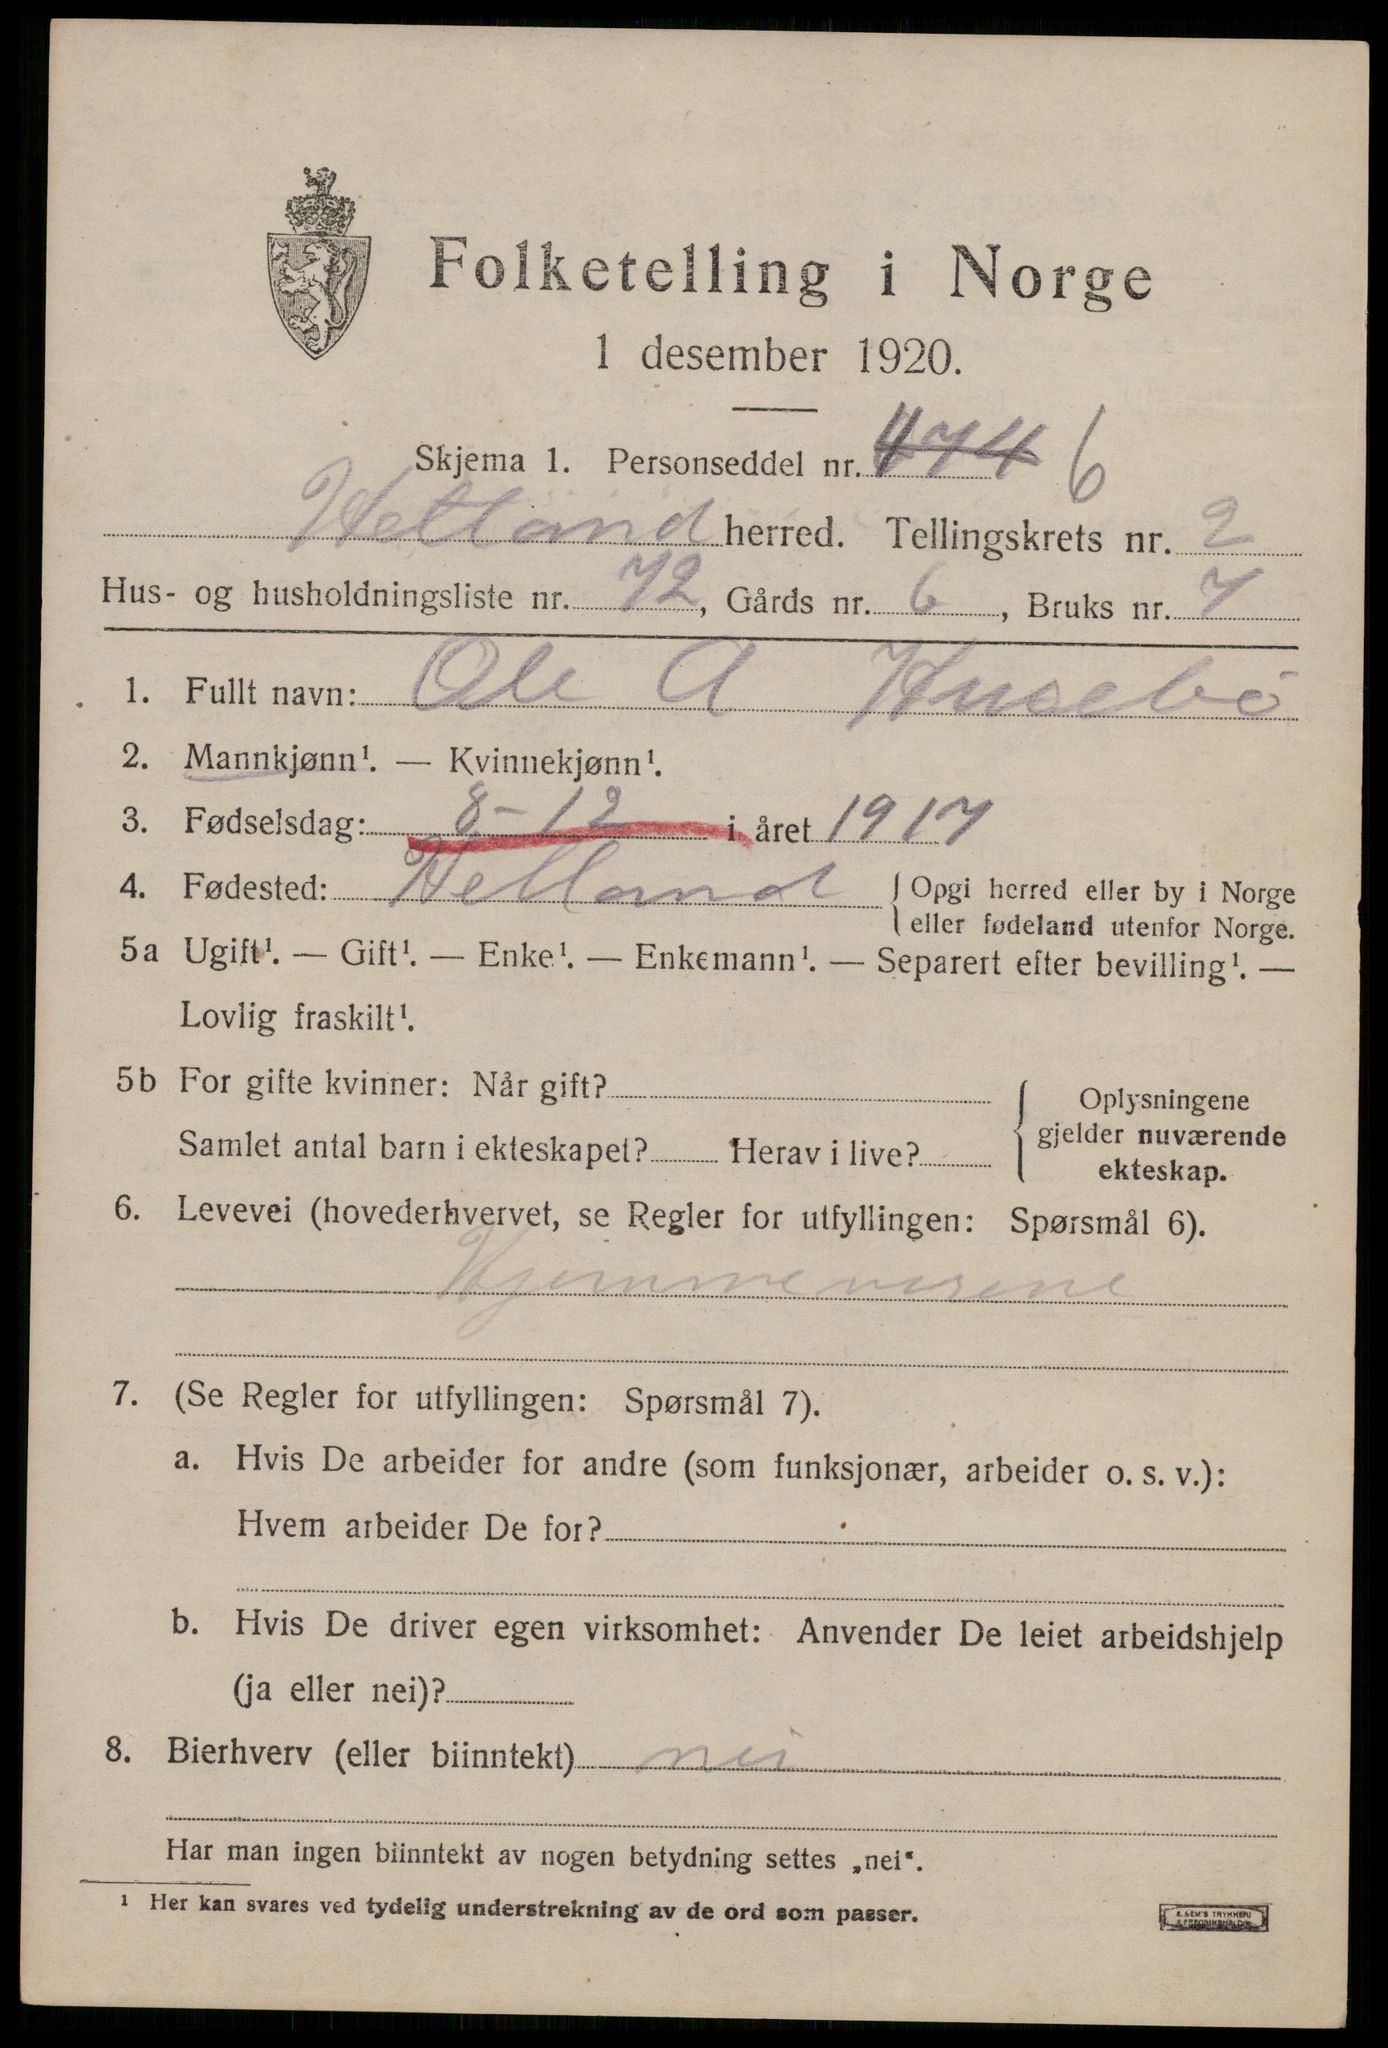 Folketelling i Norge
1 desember 1920.
Skjema 1. Personseddel nr. 474 6
Hetland herred. Tellingskrets nr. 2
Hus- og husholdningsliste nr. 72, Gårds nr. 6, Bruks nr. 7
1. Fullt navn: Ole A Husebö
2. Mannkjønn¹. — Kvinnekjønn¹.
3. Fødselsdag: 8-12 i året 1917
4. Fødested: Hetland { Opgi herred eller by i Norge
eller fødeland utenfor Norge.
5a Ugift¹. — Gift¹. — Enke¹. — Enkemann¹. — Separert efter bevilling¹. —
Lovlig fraskilt¹.
5b For gifte kvinner: Når gift?
Samlet antal barn i ekteskapet? Herav i live?
Oplysningene
gjelder nuværende
ekteskap.
6. Levevei (hovederhvervet, se Regler for utfyllingen: Spørsmål 6).
Hjemmeværene
7. (Se Regler for utfyllingen: Spørsmål 7).
a. Hvis De arbeider for andre (som funksjonær, arbeider o. s. v.):
Hvem arbeider De for?
b. Hvis De driver egen virksomhet: Anvender De leiet arbeidshjelp
(ja eller nei)?
8. Bierhverv (eller biinntekt) nei
Har man ingen biinntekt av nogen betydning settes „nei“.
¹ Her kan svares ved tydelig understrekning av de ord som passer.
E. SEM'S TRYKKERI
FREDRIKSHALD